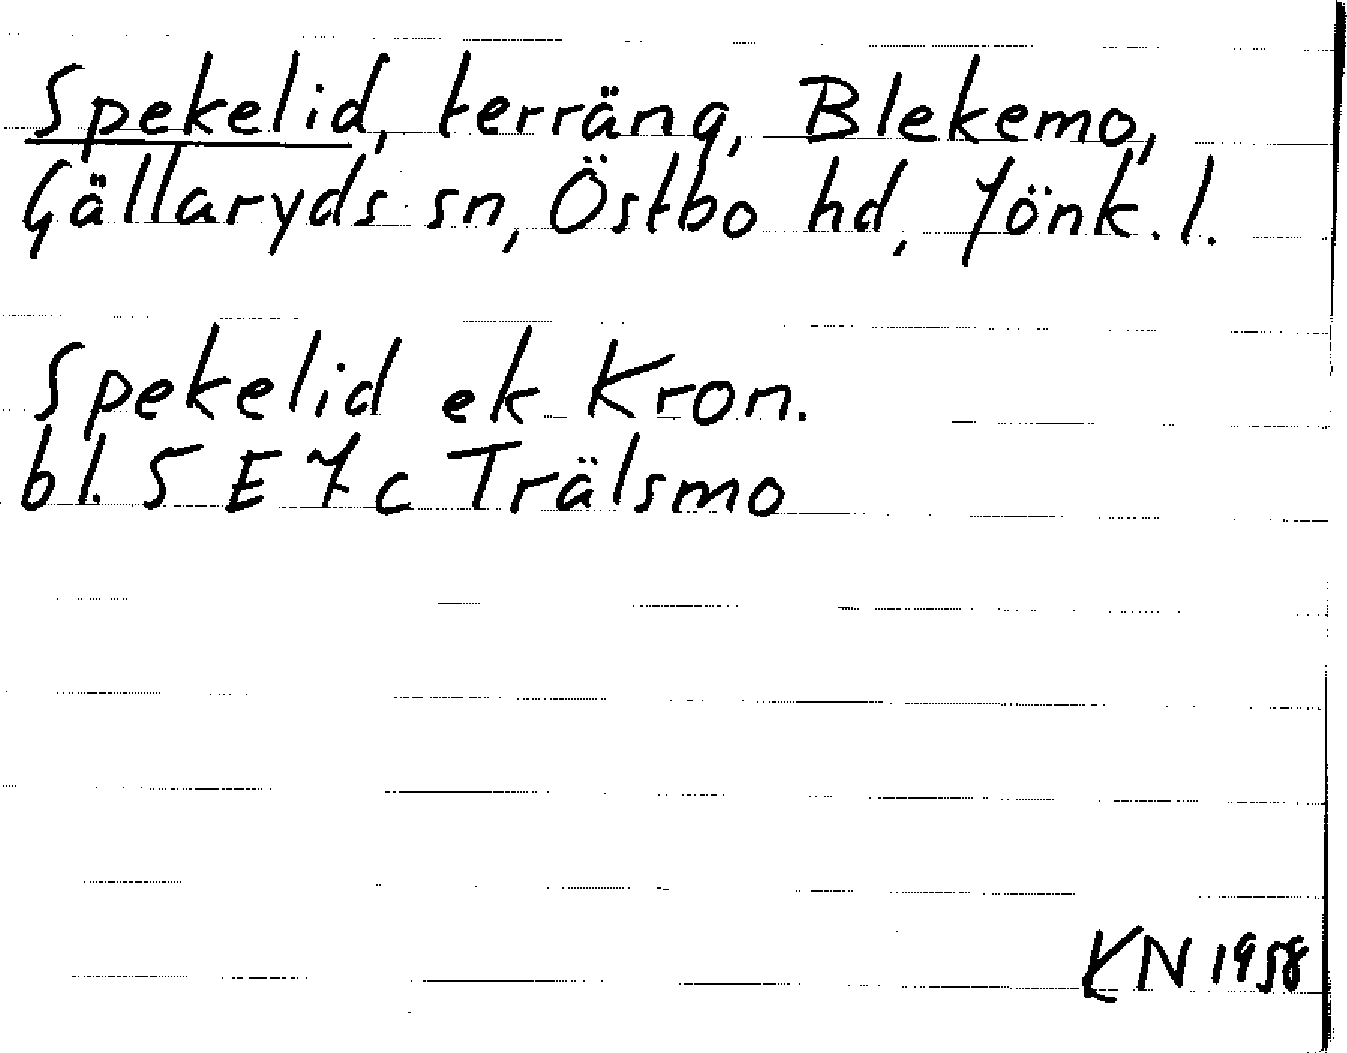 Spekelid, terräng, Blekemo,
Gällaryds sn, Östbo hd, Jönk. l.
Spekelid ek Kron.
bl. 5 E 7 c Trälsmo
KN 1958